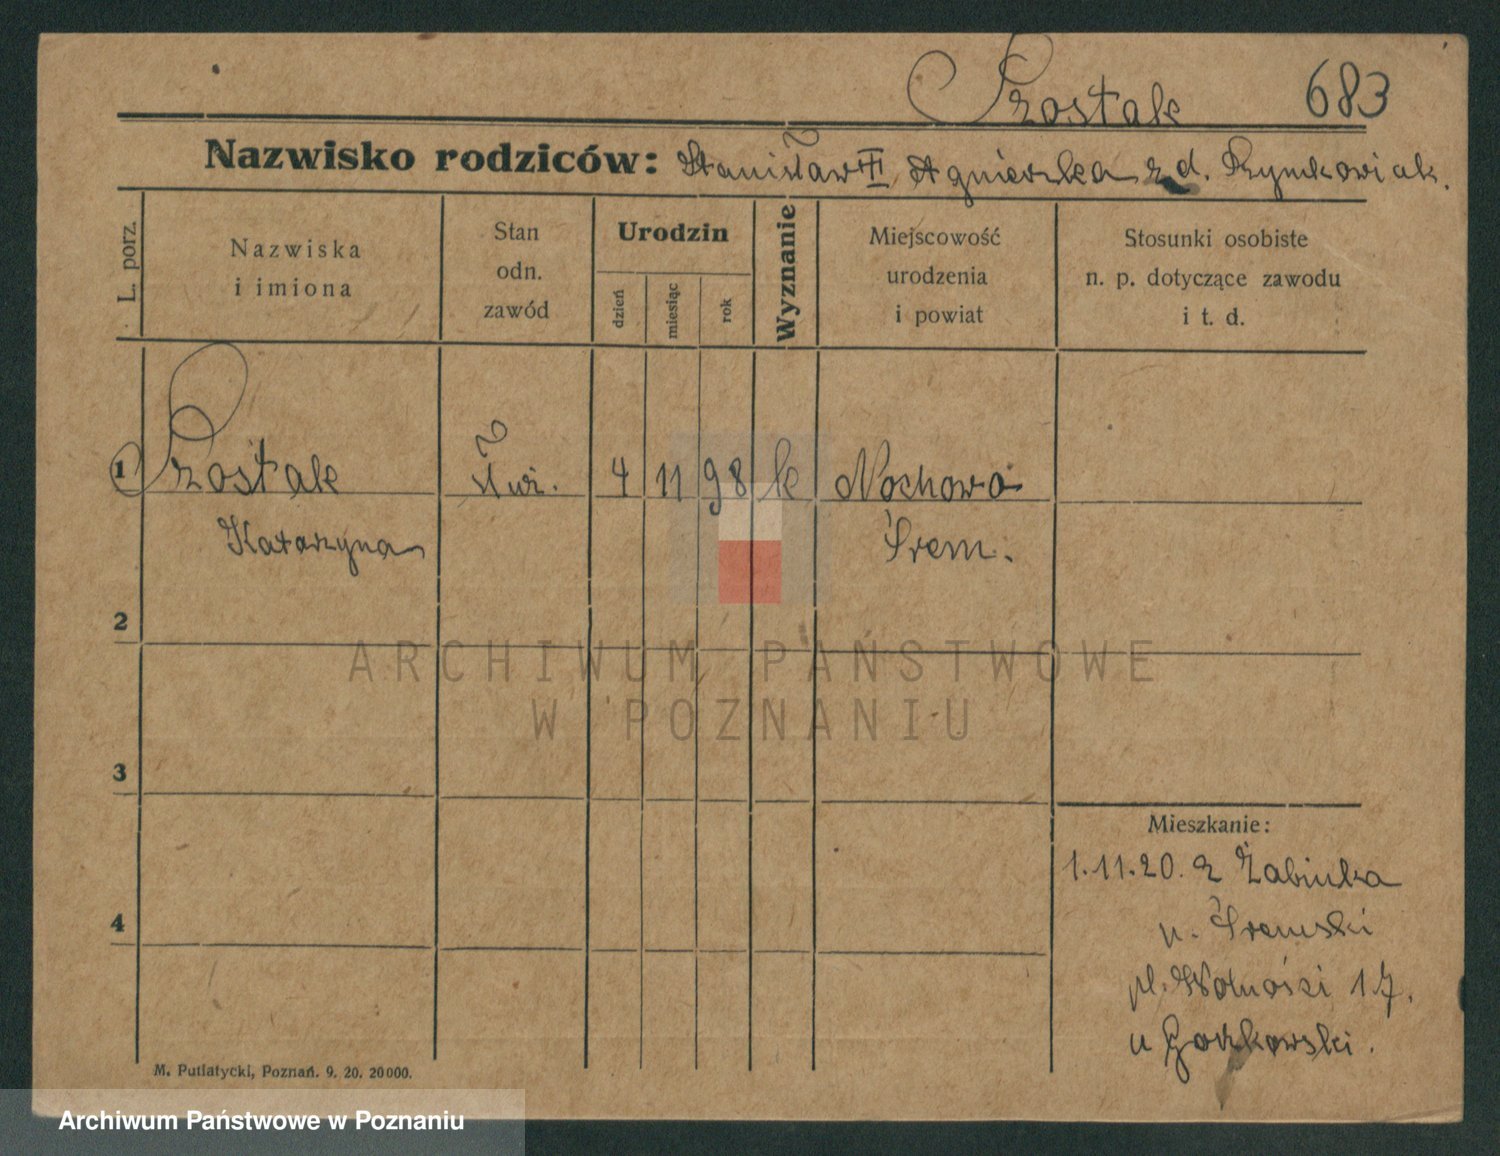 Szostak 683
Nazwisko rodziców: Stanisław II Agnieszka z d. Szymkowiak.
L. porz.
Nazwiska
i imiona
Stan
odn.
zawód
Urodzin
dzień
miesiąc
rok
Wyznanie
Miejscowość
urodzenia
i powiat
Stosunki osobiste
n. p. dotyczące zawodu
i t. d.
1 Szostak 4 11 98 k Nochowo
Katarzyna Śrem.
2
3
4
Mieszkanie:
1.11.20. z Żabinka
p. Śremski
pl. Wolności 17.
u Gorzkowski.
M. Putiatycki, Poznań. 9. 20. 20000.
ARCHIWUM PAŃSTWOWE
W POZNANIU
Archiwum Państwowe w Poznaniu